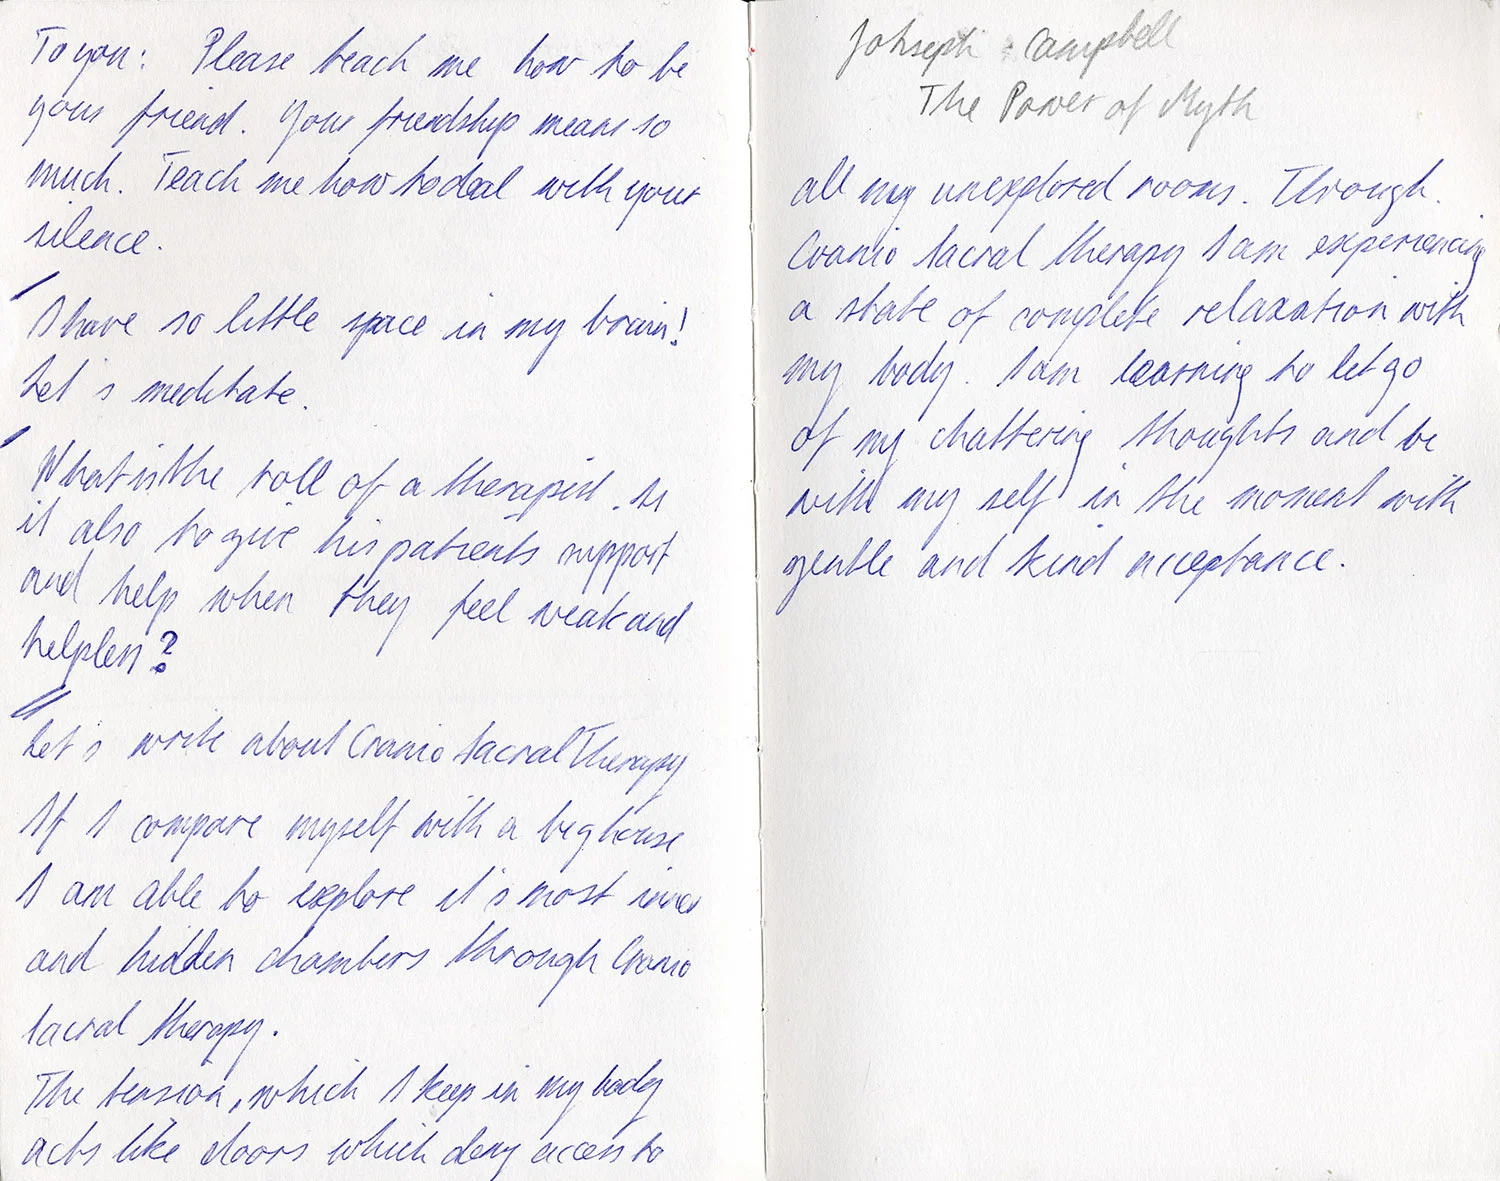 To you: Please teach me how to be
your friend. Your friendship means so
much. Teach me how to deal with your
silence.
I have so little space in my brain!
Let's meditate.
What is the roll of a therapist. Is
it also to give his patients support
and help when they feel weak and
helpless?
Let's write about Cranio Sacral Therapy
If I compare myself with a big house
I am able to explore it's most inner
and hidden chambers through Cranio
Sacral therapy.
The tension, which I keep in my body
acts like doors which deny access to
Johseph Campbell
The Power of Myth
all my unexplored rooms. Through.
Cranio Sacral therapy I am experiencing
a state of complete relaxation with
my body. I am learning to let go
of my chattering thoughts and be
with my self in the moment with
gentle and kind acceptance.